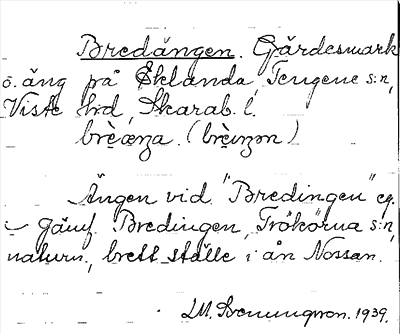 Bredängen. Gärdesmark
o. äng på Eklanda, Tengene s:n,
Viste hd, Skarab. l.
brèæŋa. (brèıŋən)
Ängen vid "Bredingen" eg.
– Jämf. Bredingen, Tråkörna s:n,
naturn., brett ställe i ån Nossan.
I.M. Svenungson. 1939.